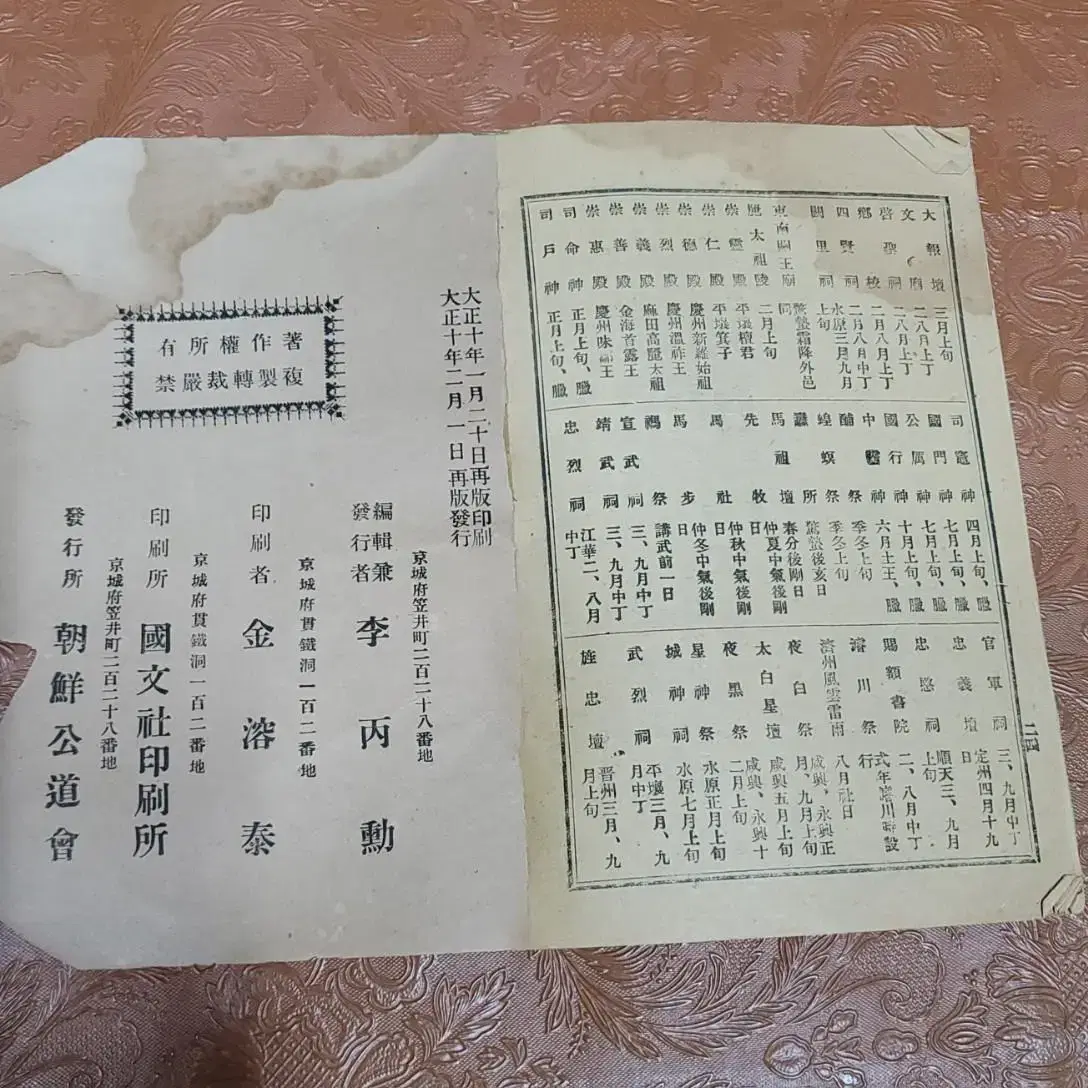 大報壇 三月上旬
文廟 二八月上丁
啓聖祠 二八月上丁
鄕校 二月八月上丁
四賢祠 二月八月中丁
闕里祠 水原三月九月
上旬
東南關王廟 驚蟄霜降外邑
同
歷太祖陵 二月上旬
崇靈殿 平壤檀君
崇仁殿 平壤箕子
崇德殿 慶州新羅始祖
崇烈殿 慶州溫祚王
崇義殿 麻田高麗太祖
崇善殿 金海首露王
崇惠殿 慶州味鄒王
司命神 正月上旬、臘
司戶神 正月上旬、臘
司竈神 四月上旬、臘
國門神 七月上旬、臘
公厲神 七月上旬、臘
國行神 十月上旬、臘
中霤神 六月土王、臘
酺祭 季冬上旬
蝗螟祭 季冬上旬
纛所 驚蟄後亥日
馬祖壇 春分後剛日
先牧 仲夏中氣後剛
日
馬社 仲秋中氣後剛
日
馬步 仲冬中氣後剛
日
禡祭 講武前一日
宣武祠 三、九月中丁
靖武祠 三、九月中丁
忠烈祠 江華二、八月
中丁
官軍祠 三、九月中丁
忠義壇 定州四月十九
日
忠愍祠 順天三、九月
上旬
賜額書院 二、八月中丁
濬川祭 式年濬川時設
行
濟州風雲雷雨 八月社日
夜白祭 咸興、永興正
月、九月上旬
太白星壇 咸興五月上旬
夜黑祭 咸興、永興十
二月上旬
星神祭 水原正月上旬
城神祠 水原七月上旬
武烈祠 平壤三月、九
月中丁
旌忠壇 晋州三月、九
月上旬
二四
大正十年一月二十日再版印刷
大正十年二月一日再版發行
著作權所有
複製轉裁嚴禁
京城府笠井町二百二十八番地
編輯兼
發行者 李丙勳
京城府貫鐵洞一百二番地
印刷者 金溶泰
京城府貫鐵洞一百二番地
印刷所 國文社印刷所
京城府笠井町二百二十八番地
發行所 朝鮮公道會